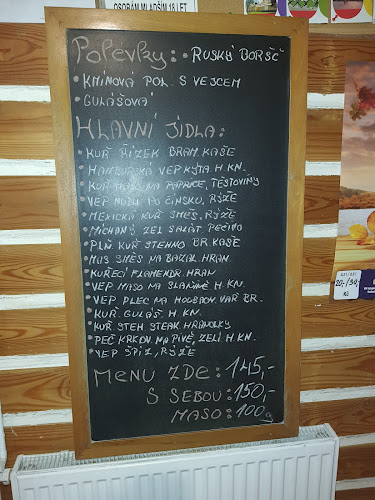 OSOBÁM MLADŠÍM 18 LET
Polévky: • RUSKÝ BORŠČ
• KMÍNOVÁ POL. S VEJCEM
• GULÁŠOVÁ
HLAVNÍ JÍDLA:
• KUŘ ŘÍZEK BRAM. KAŠE
• HAMBURSKÁ VEP KÝTA H. KN.
• KUŘ MASO NA PAPRICE, TĚSTOVINY
• VEP NUDL PO ČÍNSKU, RÝŽE
• MEXICKÁ KUŘ SMĚS, RÝŽE
• MÍCHANÝ ZEL SALÁT PEČIVO
• PLN KUŘ STEHNO BR KAŠE
• MAS SMĚS NA BAZAL. HRAN.
• KUŘECÍ FLAMENDR. HRAN
• VEP MASO NA SLANINĚ H. KN.
• VEP PLEC NA HOUBÁCH VAŘ BR.
• KUŘ. GULÁŠ H. KN.
• KUŘ STEH STEAK HRANOLKY
• PEČ KRKOV. NA PIVĚ, ZELÍ H. KN.
• VEP ŠPÍZ, RÝŽE
MENU ZDE: 145,-
S SEBOU: 150,-
MASO: 100g
20,-/30,-
Kč